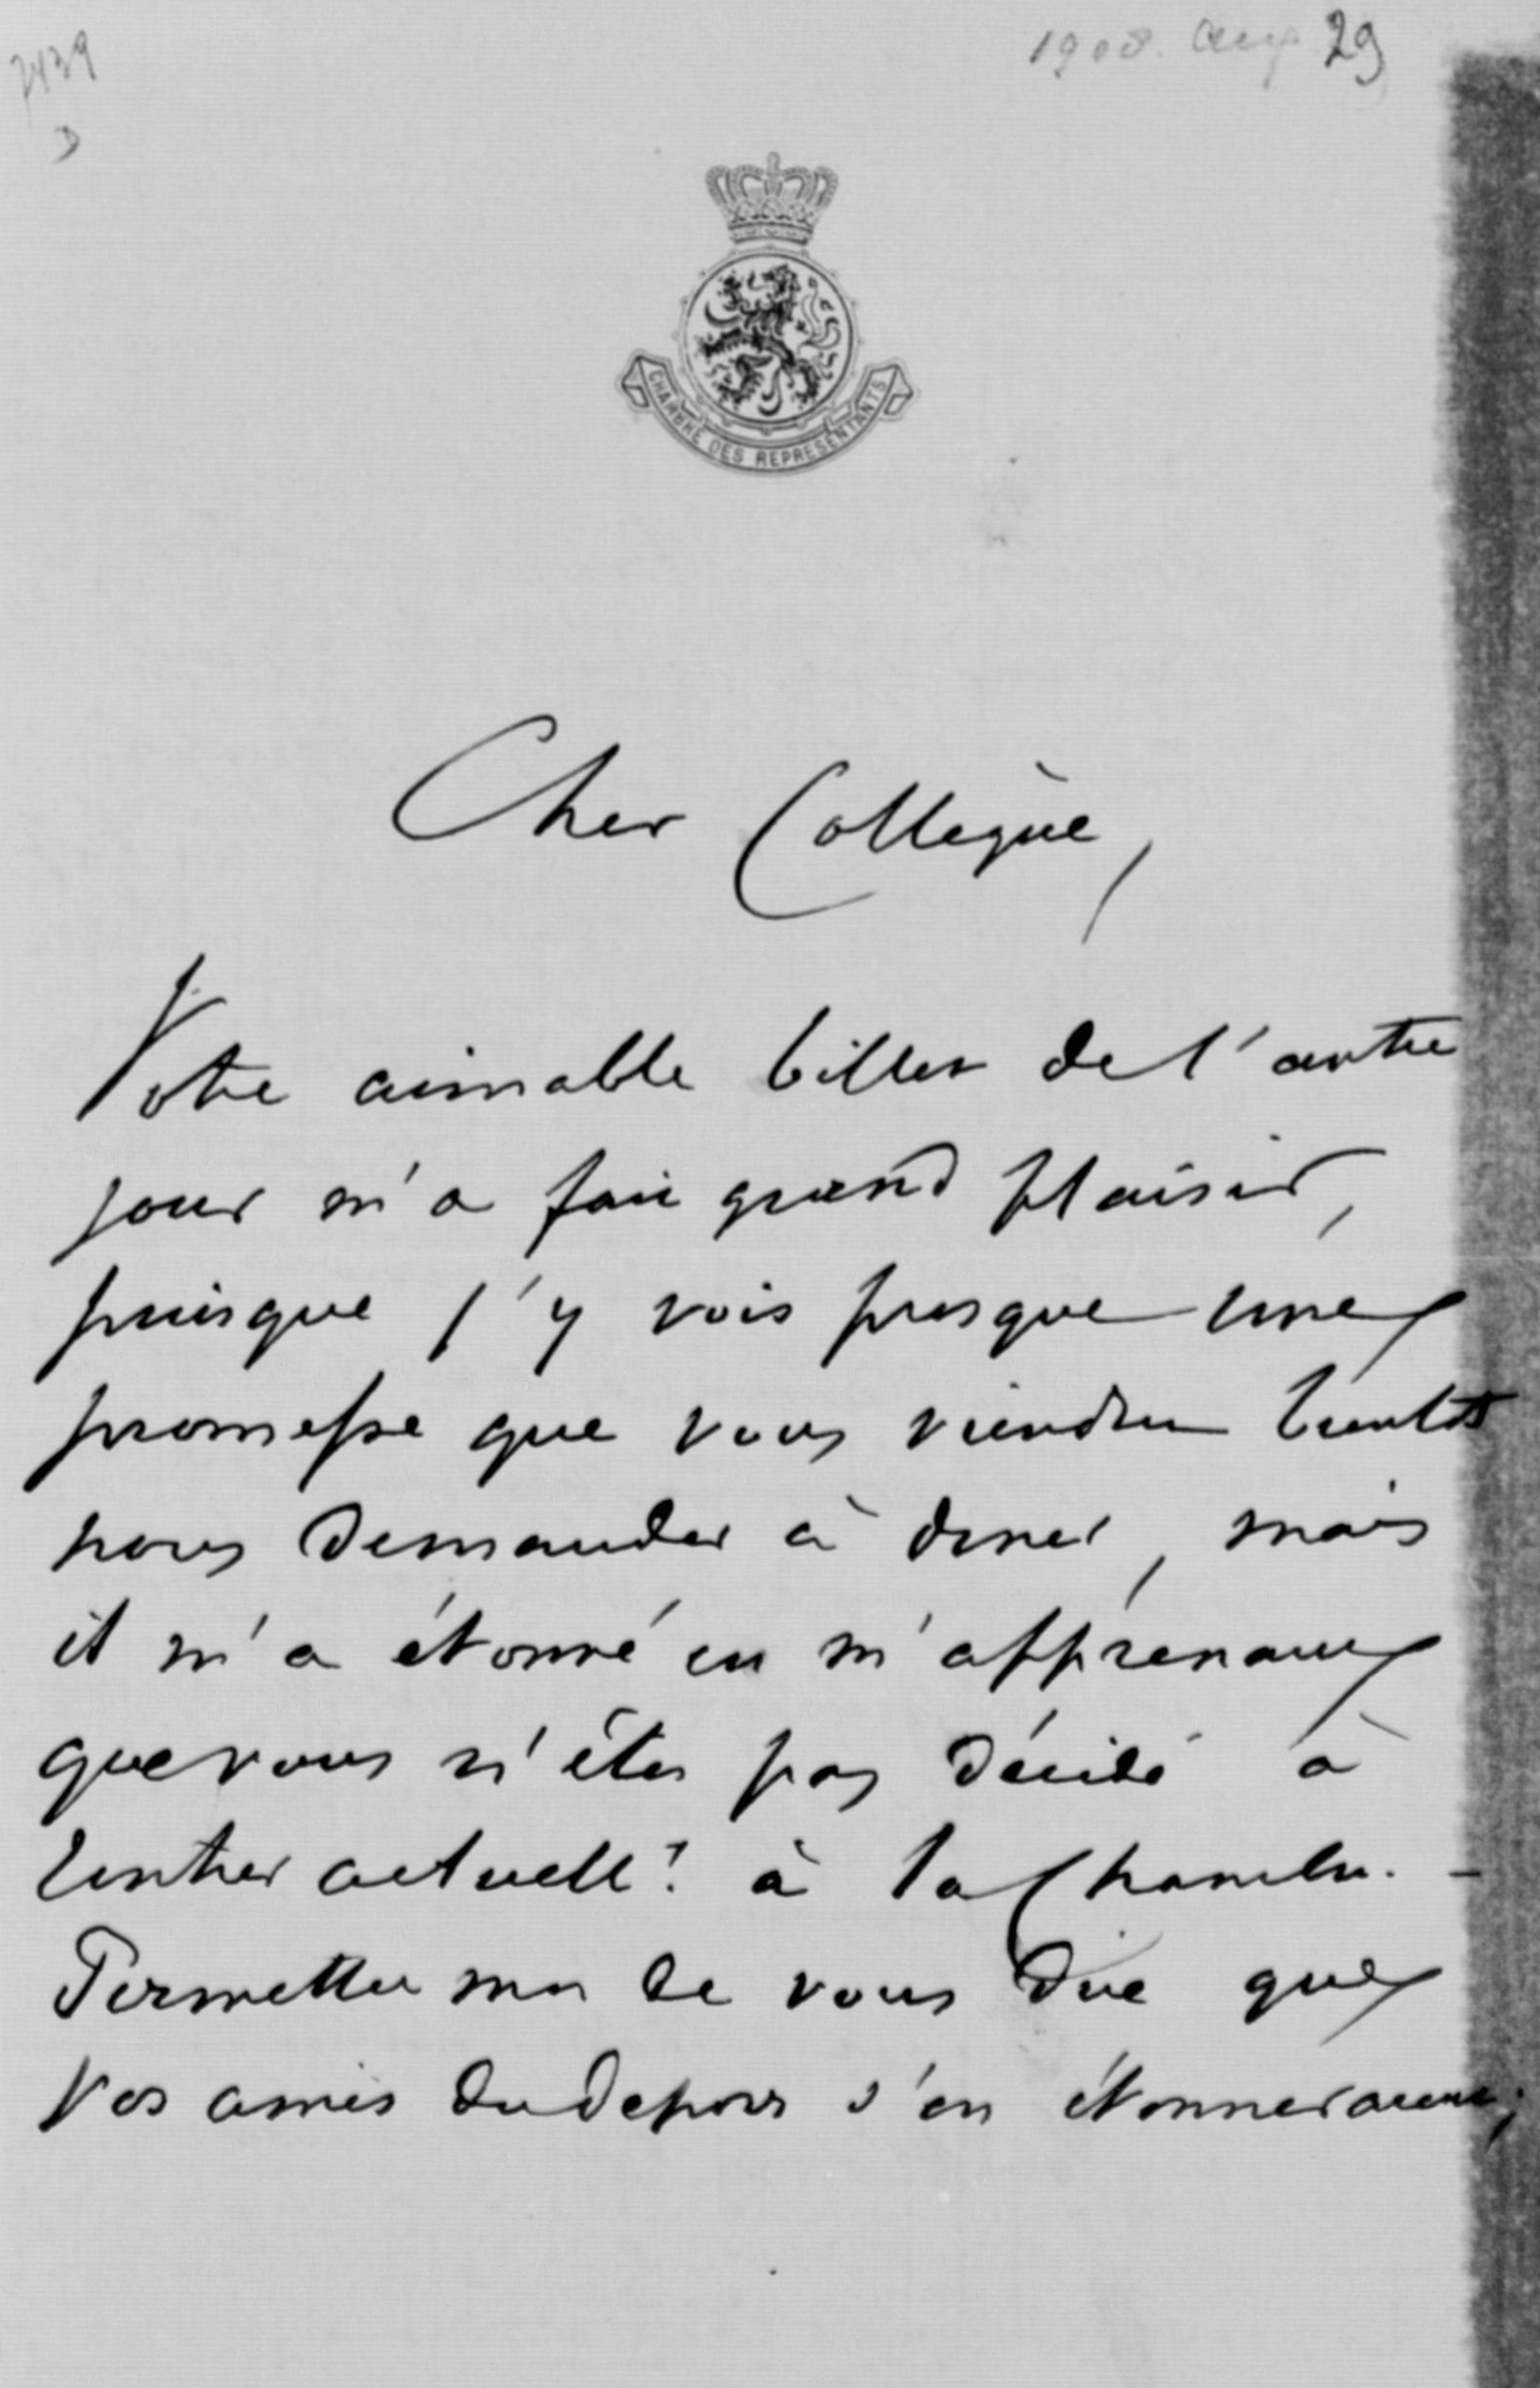 7439
1908. Aug 29
D
CHAMBRE DES REPRESENTANTS
Cher Collègue,
Votre aimable billet de l'autre
jour m'a fait grand plaisir,
puisque j'y vois presque une
promesse que vous viendrez bientôt
nous demander à diner, mais
il m'a étonné en m'apprenant
que vous n'êtes pas décidé à
rentrer actuellt à la Chambre. -
Permettez moi de vous dire que
vos amis du dehors s'en étonneraient;